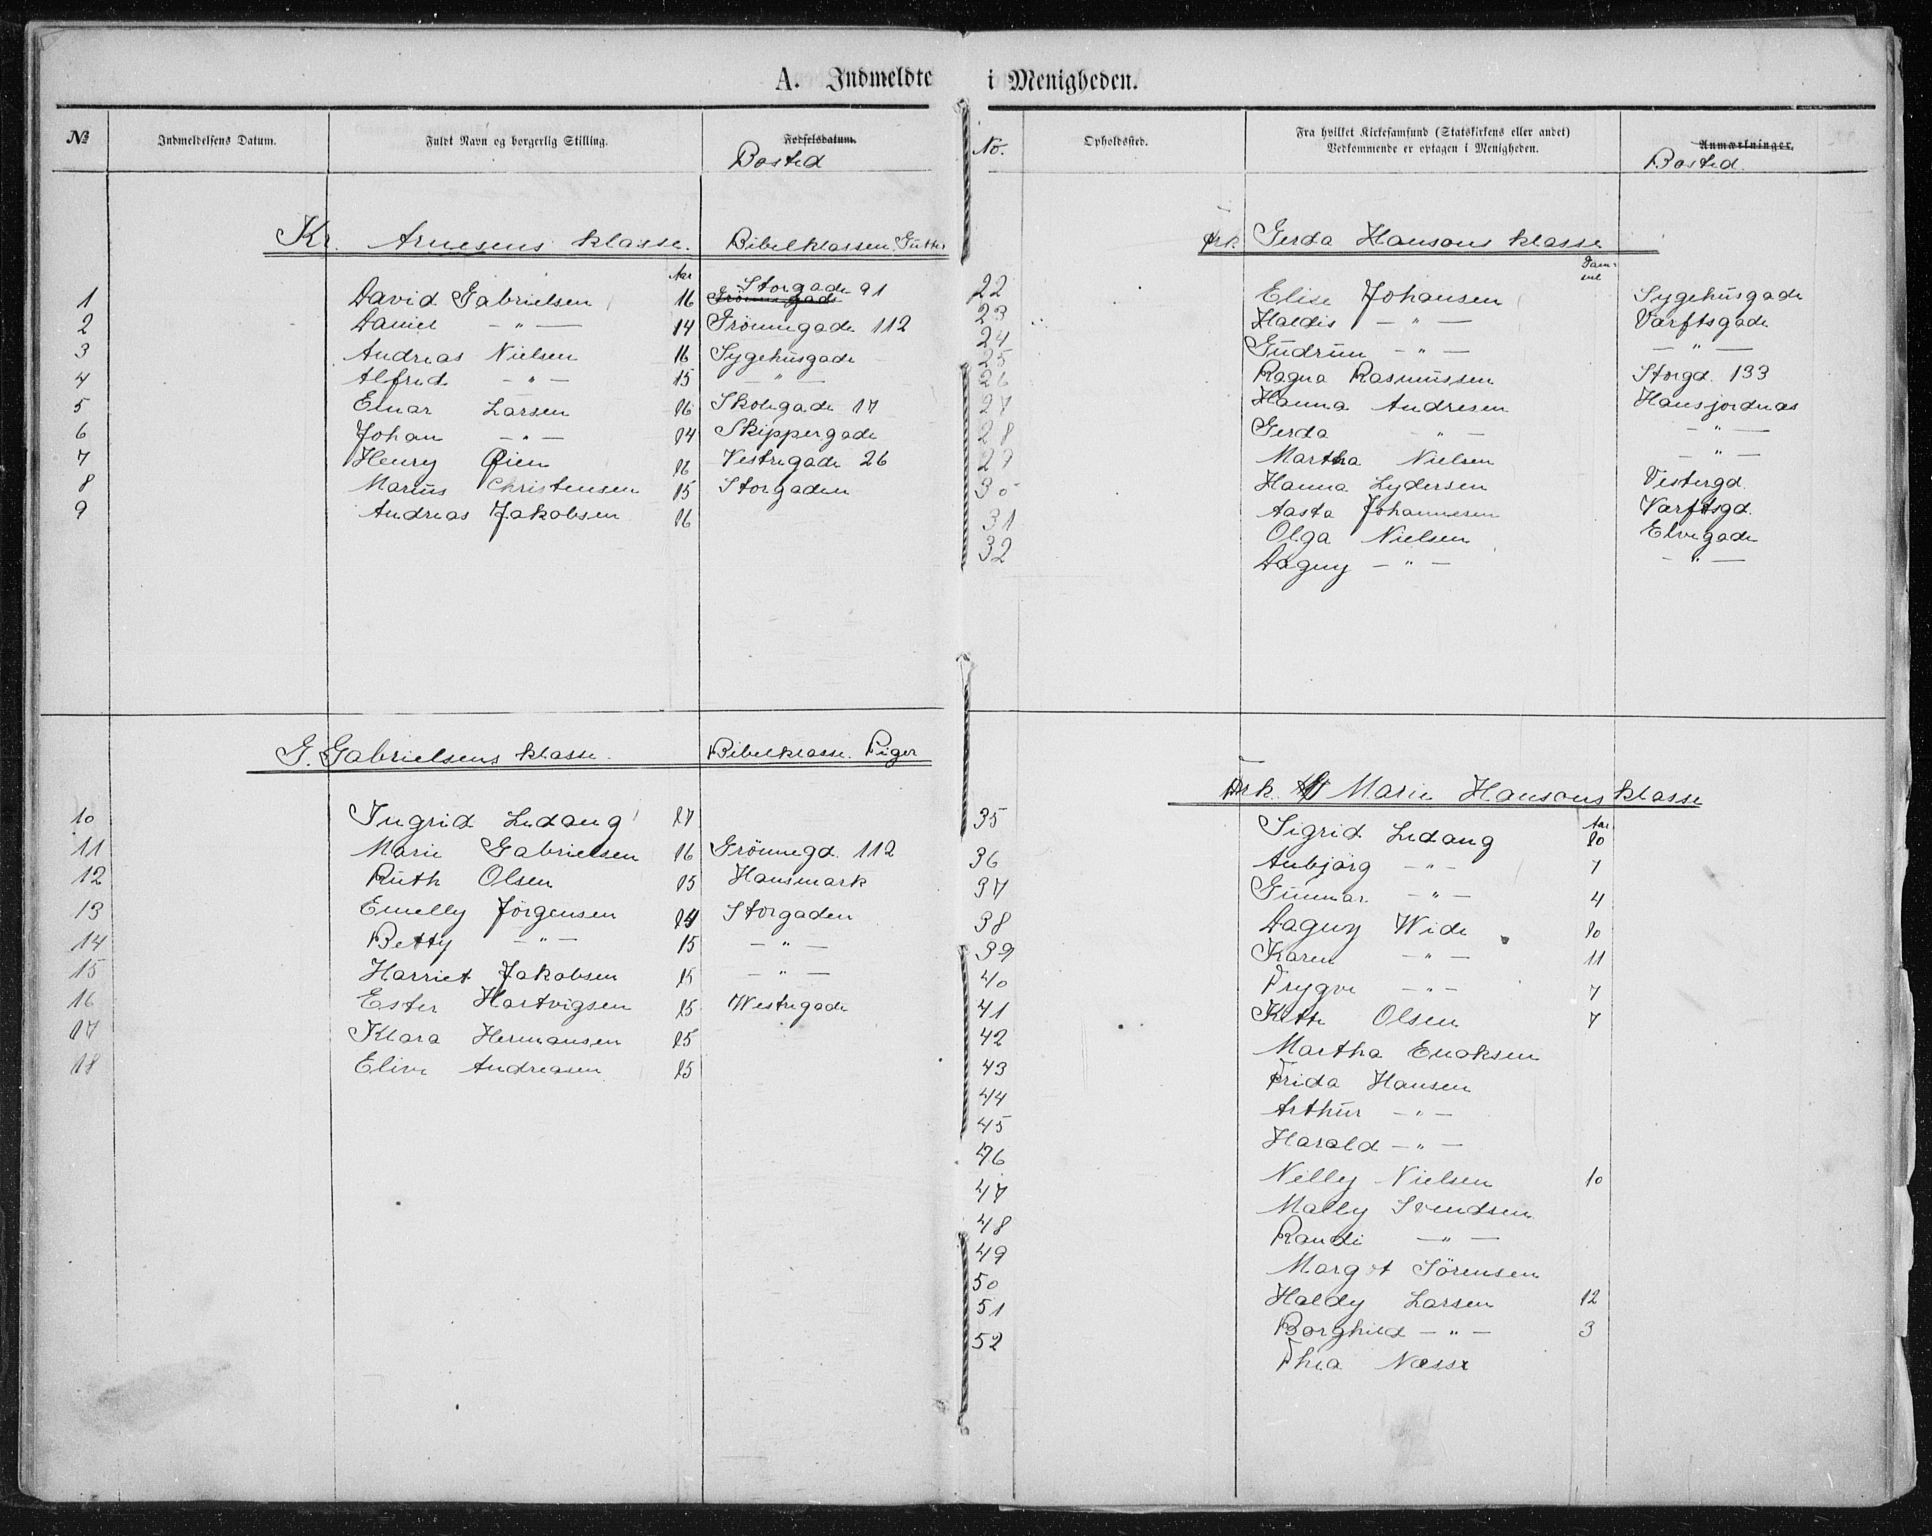 A. Indmeldte i Menigheden.
№ Indmeldelsens Datum. Fuldt Navn og borgerlig Stilling. Fødselsdatum. Bosted
Kr. Arnesens klasse. Bibelklassen. Gutter
Aar
1 David Gabrielsen 16 Grønnegade Storgade 91
2 Daniel —"— 14 Grönnegade 112
3 Andreas Nielsen 16 Sygehusgade
4 Alfred —"— 15 —"—
5 Einar Larsen 16 Skolegade 17
6 Johan —"— 14 Skippergade
7 Henry Øien 16 Vestregade 26
8 Marius Christensen 15 Storgaden
9 Andreas Jakobsen 16
G. Gabrielsens klasse. Bibelklasse. Piger
10 Ingrid Ledang 17
11 Marie Gabrielsen 16 Grönnegd. 112
12 Ruth Olsen 15 Hansmark
13 Emelly Jörgensen 14 Storgaden
14 Betty —"— 15 —"—
15 Harriet Jakobsen 15 —"—
16 Ester Hartvigsen 15 Westregade
17 Klara Hermansen 15
18 Eline Andreasen 15
No. Opholdssted. Fra hvilket Kirkesamfund (Statskirkens eller andet)
Vedkommende er optagen i Menigheden. Anmærkninger. Bosted.
Frk. Gerda Hansons klasse
22 Elise Johansen Sygehusgade
23 Haldis —"— Varftsgade
24 Gudrun —"— —"—
25 Ragna Rasmussen Storgd. 133
26 Hanna Andresen Hansjordnæs
27 Gerda —"— —"—
28 Martha Nielsen —"—
29 Hanna Lydersen Vestergd.
30 Aasta Johannesen Varftsgd.
31 Olga Nielsen Elvegade
32 Dagny —"— —"—
Frk. Marie Hansons klasse
Aar
35 Sigrid Ledang 10
36 Anbjörg —"— 7
37 Gunnar —"— 4
38 Dagny Wide 10
39 Karen —"— 11
40 Trygve —"— 7
41 Olsen 7
42 Martha Enoksen
43 Frida Hansen
44 Arthur —"—
45 Harald —"—
46 Nelly Nielsen 10
47 Mally Svendsen
48 Randi —"—
49 Margot Sörensen
50 Haldy Larsen 12
51 Borghild —"— 3
52 Thea Næsse